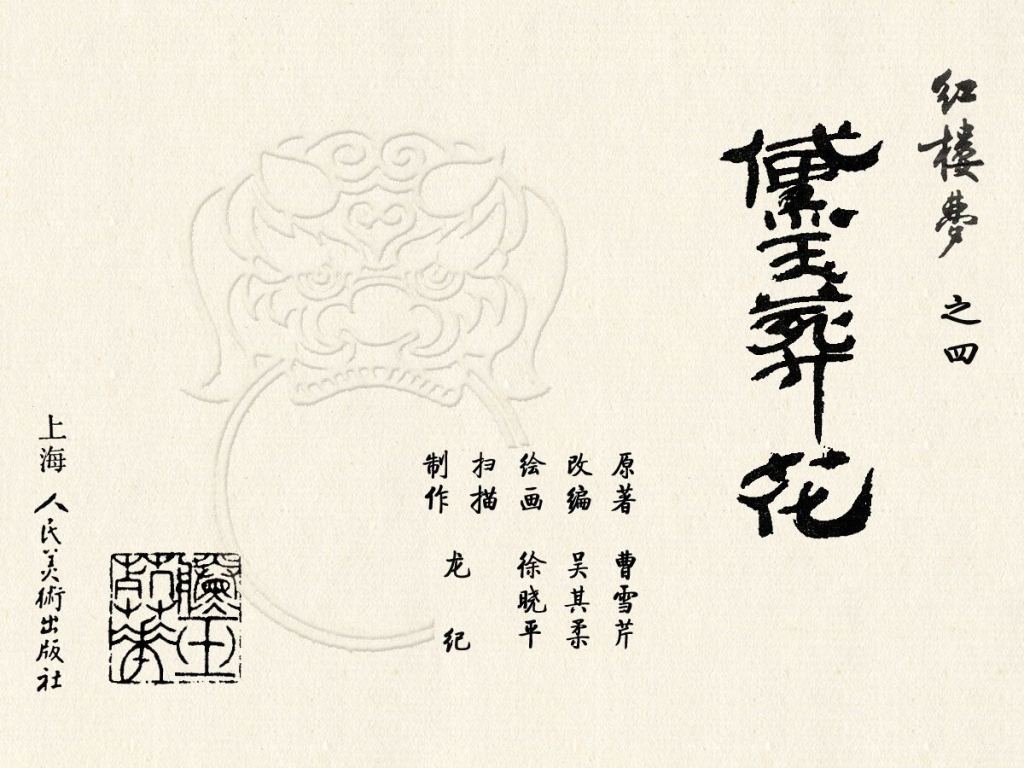 红楼梦 之四
黛玉葬花
原著 曹雪芹
改编 吴其柔
绘画 徐晓平
扫描
制作 龙纪
上海人民美術出版社
黛玉葬花